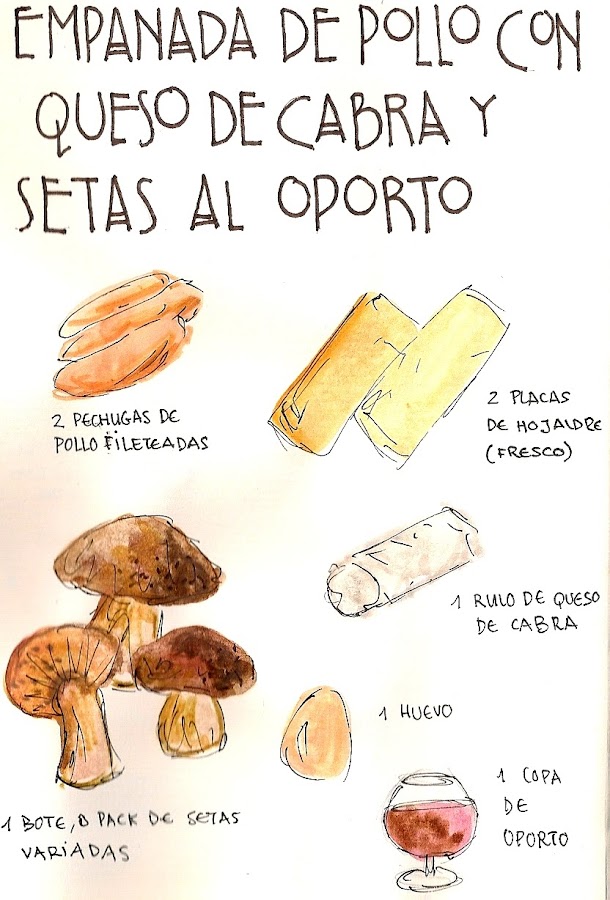 EMPANADA DE POLLO CON
QUESO DE CABRA Y
SETAS AL OPORTO
2 PECHUGAS DE
POLLO FILETEADAS
2 PLACAS
DE HOJALDRE
(FRESCO)
1 RULO DE QUESO
DE CABRA
1 HUEVO
1 COPA
DE
OPORTO
1 BOTE, O PACK DE SETAS
VARIADAS